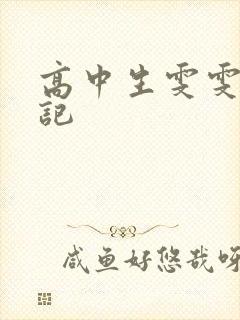 高中生雯雯
記
咸鱼好悠哉呀